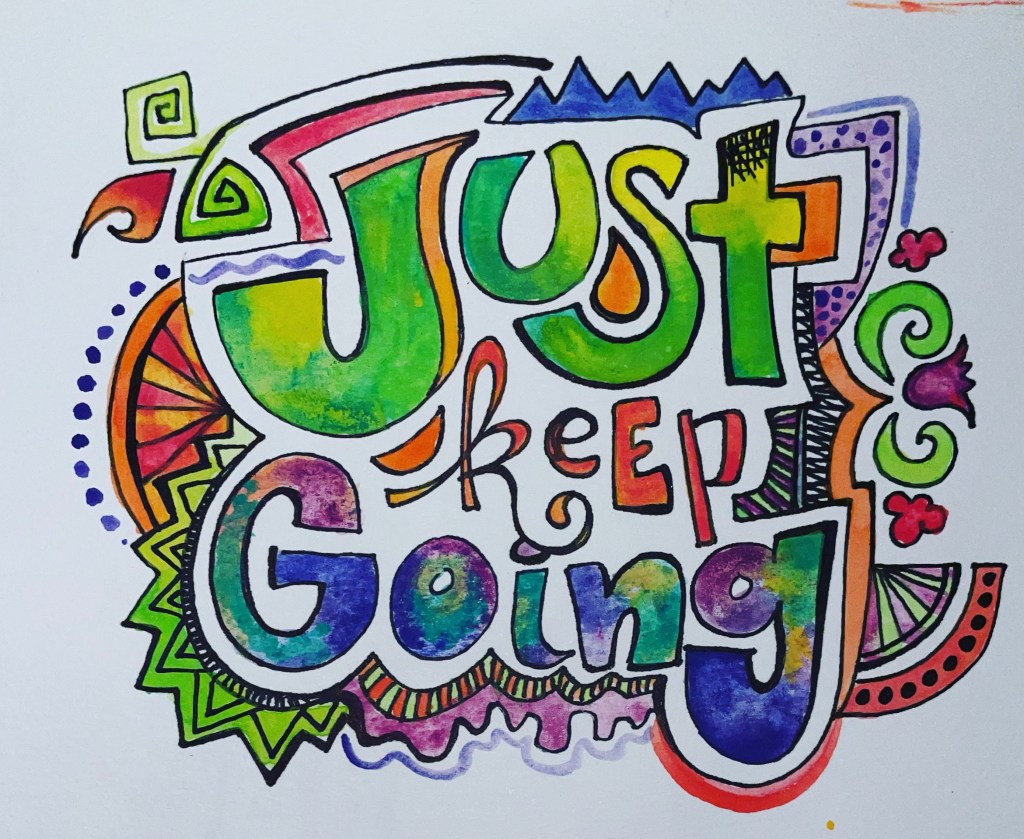 Just
keep
Going